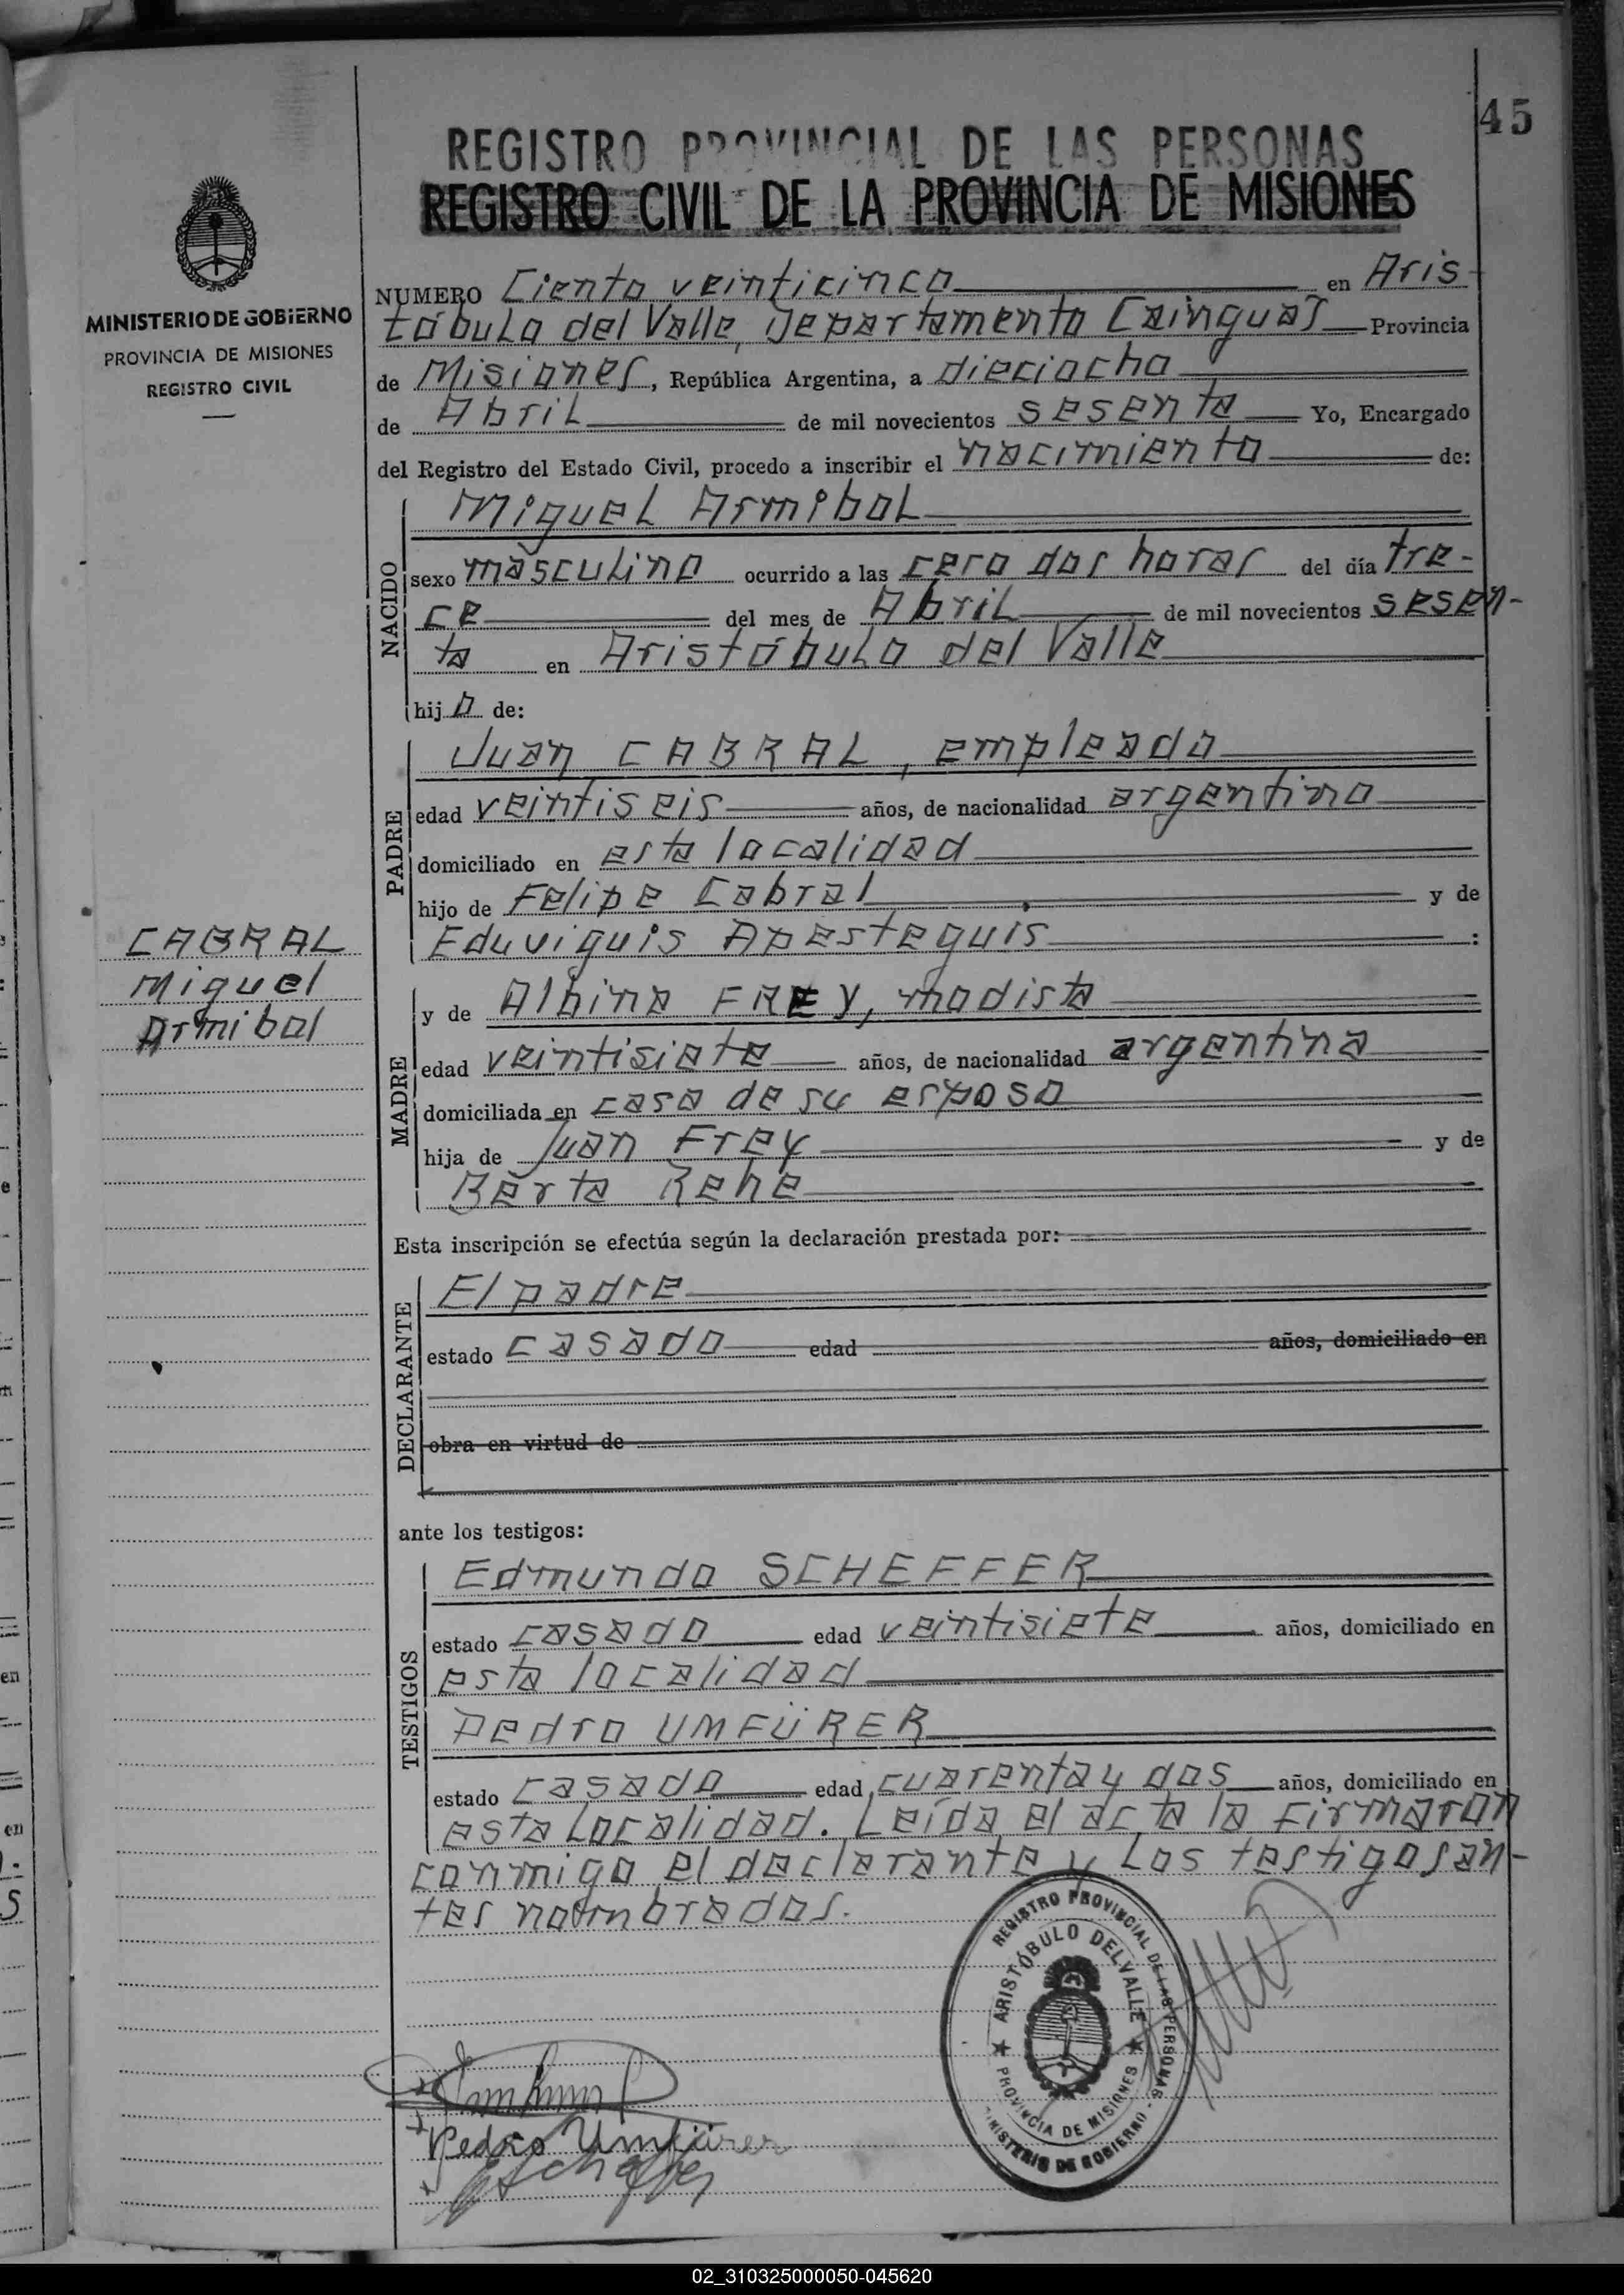 45
REGISTRO PROVINCIAL DE LAS PERSONAS
REGISTRO CIVIL DE LA PROVINCIA DE MISIONES
MINISTERIO DE GOBIERNO
PROVINCIA DE MISIONES
REGISTRO CIVIL
NUMERO Ciento veinticinco en Aris-
tóbulo del Valle, Departamento Cainguas Provincia
de Misiones, República Argentina, a dieciocho
de Abril de mil novecientos sesenta Yo, Encargado
del Registro del Estado Civil, procedo a inscribir el nacimiento de:
NACIDO
Miguel Armibal
sexo masculino ocurrido a las cero dos horas del día tre-
ce del mes de Abril de mil novecientos sesen-
ta en Aristóbulo del Valle
hijo de:
PADRE
Juan CABRAL, empleado
edad veintiseis años, de nacionalidad argentino
domiciliado en esta localidad
hijo de Felipe Cabral y de
Eduviguis Apesteguis :
CABRAL
Miguel
Armibal
MADRE
y de Albina FREY, modista
edad veintisiete años, de nacionalidad argentina
domiciliada en casa de su esposo
hija de Juan Frey y de
Berta Rehe
Esta inscripción se efectúa según la declaración prestada por:
DECLARANTE
El padre
estado casado edad años, domiciliado en
obra en virtud de
ante los testigos:
TESTIGOS
Edmundo SCHEFFER
estado casado edad veintisiete años, domiciliado en
esta localidad
Pedro UMFÜRER
estado casado edad cuarenta y dos años, domiciliado en
esta localidad. Leída el acta la firmaron
conmigo el declarante y los testigos an-
tes nombrados.
REGISTRO PROVINCIAL DE LAS PERSONAS - MINISTERIO DE GOBIERNO
ARISTÓBULO DEL VALLE
PROVINCIA DE MISIONES
Pedro Umfürer
02_310325000050-045620